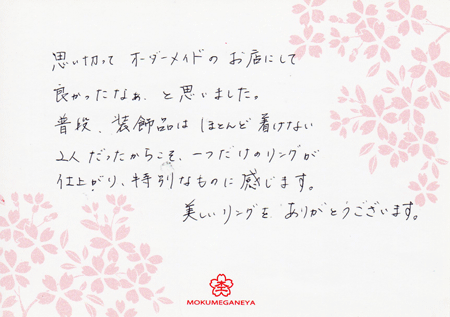 思い切って オーダーメイドの お店にして
良かったなぁ、と思いました。
普段、装飾品は ほとんど着けない
2人だったからこそ、一つだけのリングが
仕上がり、特別なものに感じます。
美しいリングを ありがとうございます。
MOKUMEGANEYA